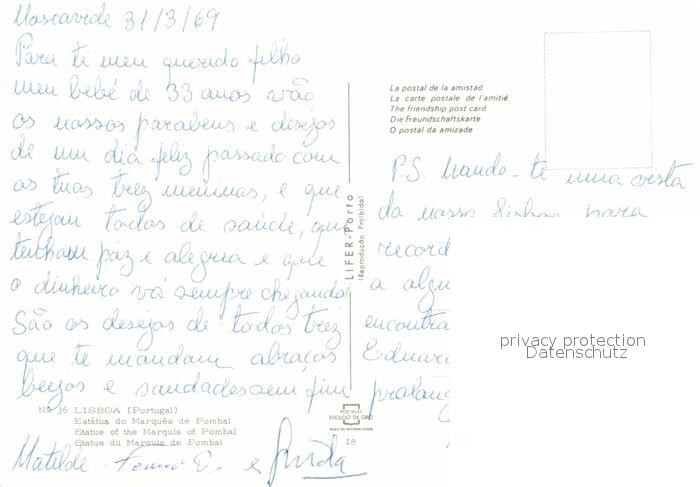 Moscavide 31/3/69
Para ti meu querido filho
meu bebé de 33 anos vão
os nossos parabens e desejos
de um dia feliz passado com
as tuas trez meninas, e que
estejam todas de saúde, que
tenham páz e alegria e que
o dinheiro vá sempre chegando
São os desejos de todos trez
que te mandam abraços
beijos e saudades sem fim
Nº 36 LISBOA (Portugal)
Estátua do Marquês de Pombal
Statue of the Marquis of Pombal
Statue du Marquis de Pombal
Matilde -
e
LIFER-Porto
(Reprodução Proibida)
POSTALES
ESCUDO DE ORO
18
La postal de la amistad
La carte postale de l'amitié
The friendship post card
Die Freundschaftskarte
O postal da amizade
P.S. Mando-te uma vista
da nossa Lisboa para
record
a algu
encontra
Eduard
prolong
privacy protection
Datenschutz